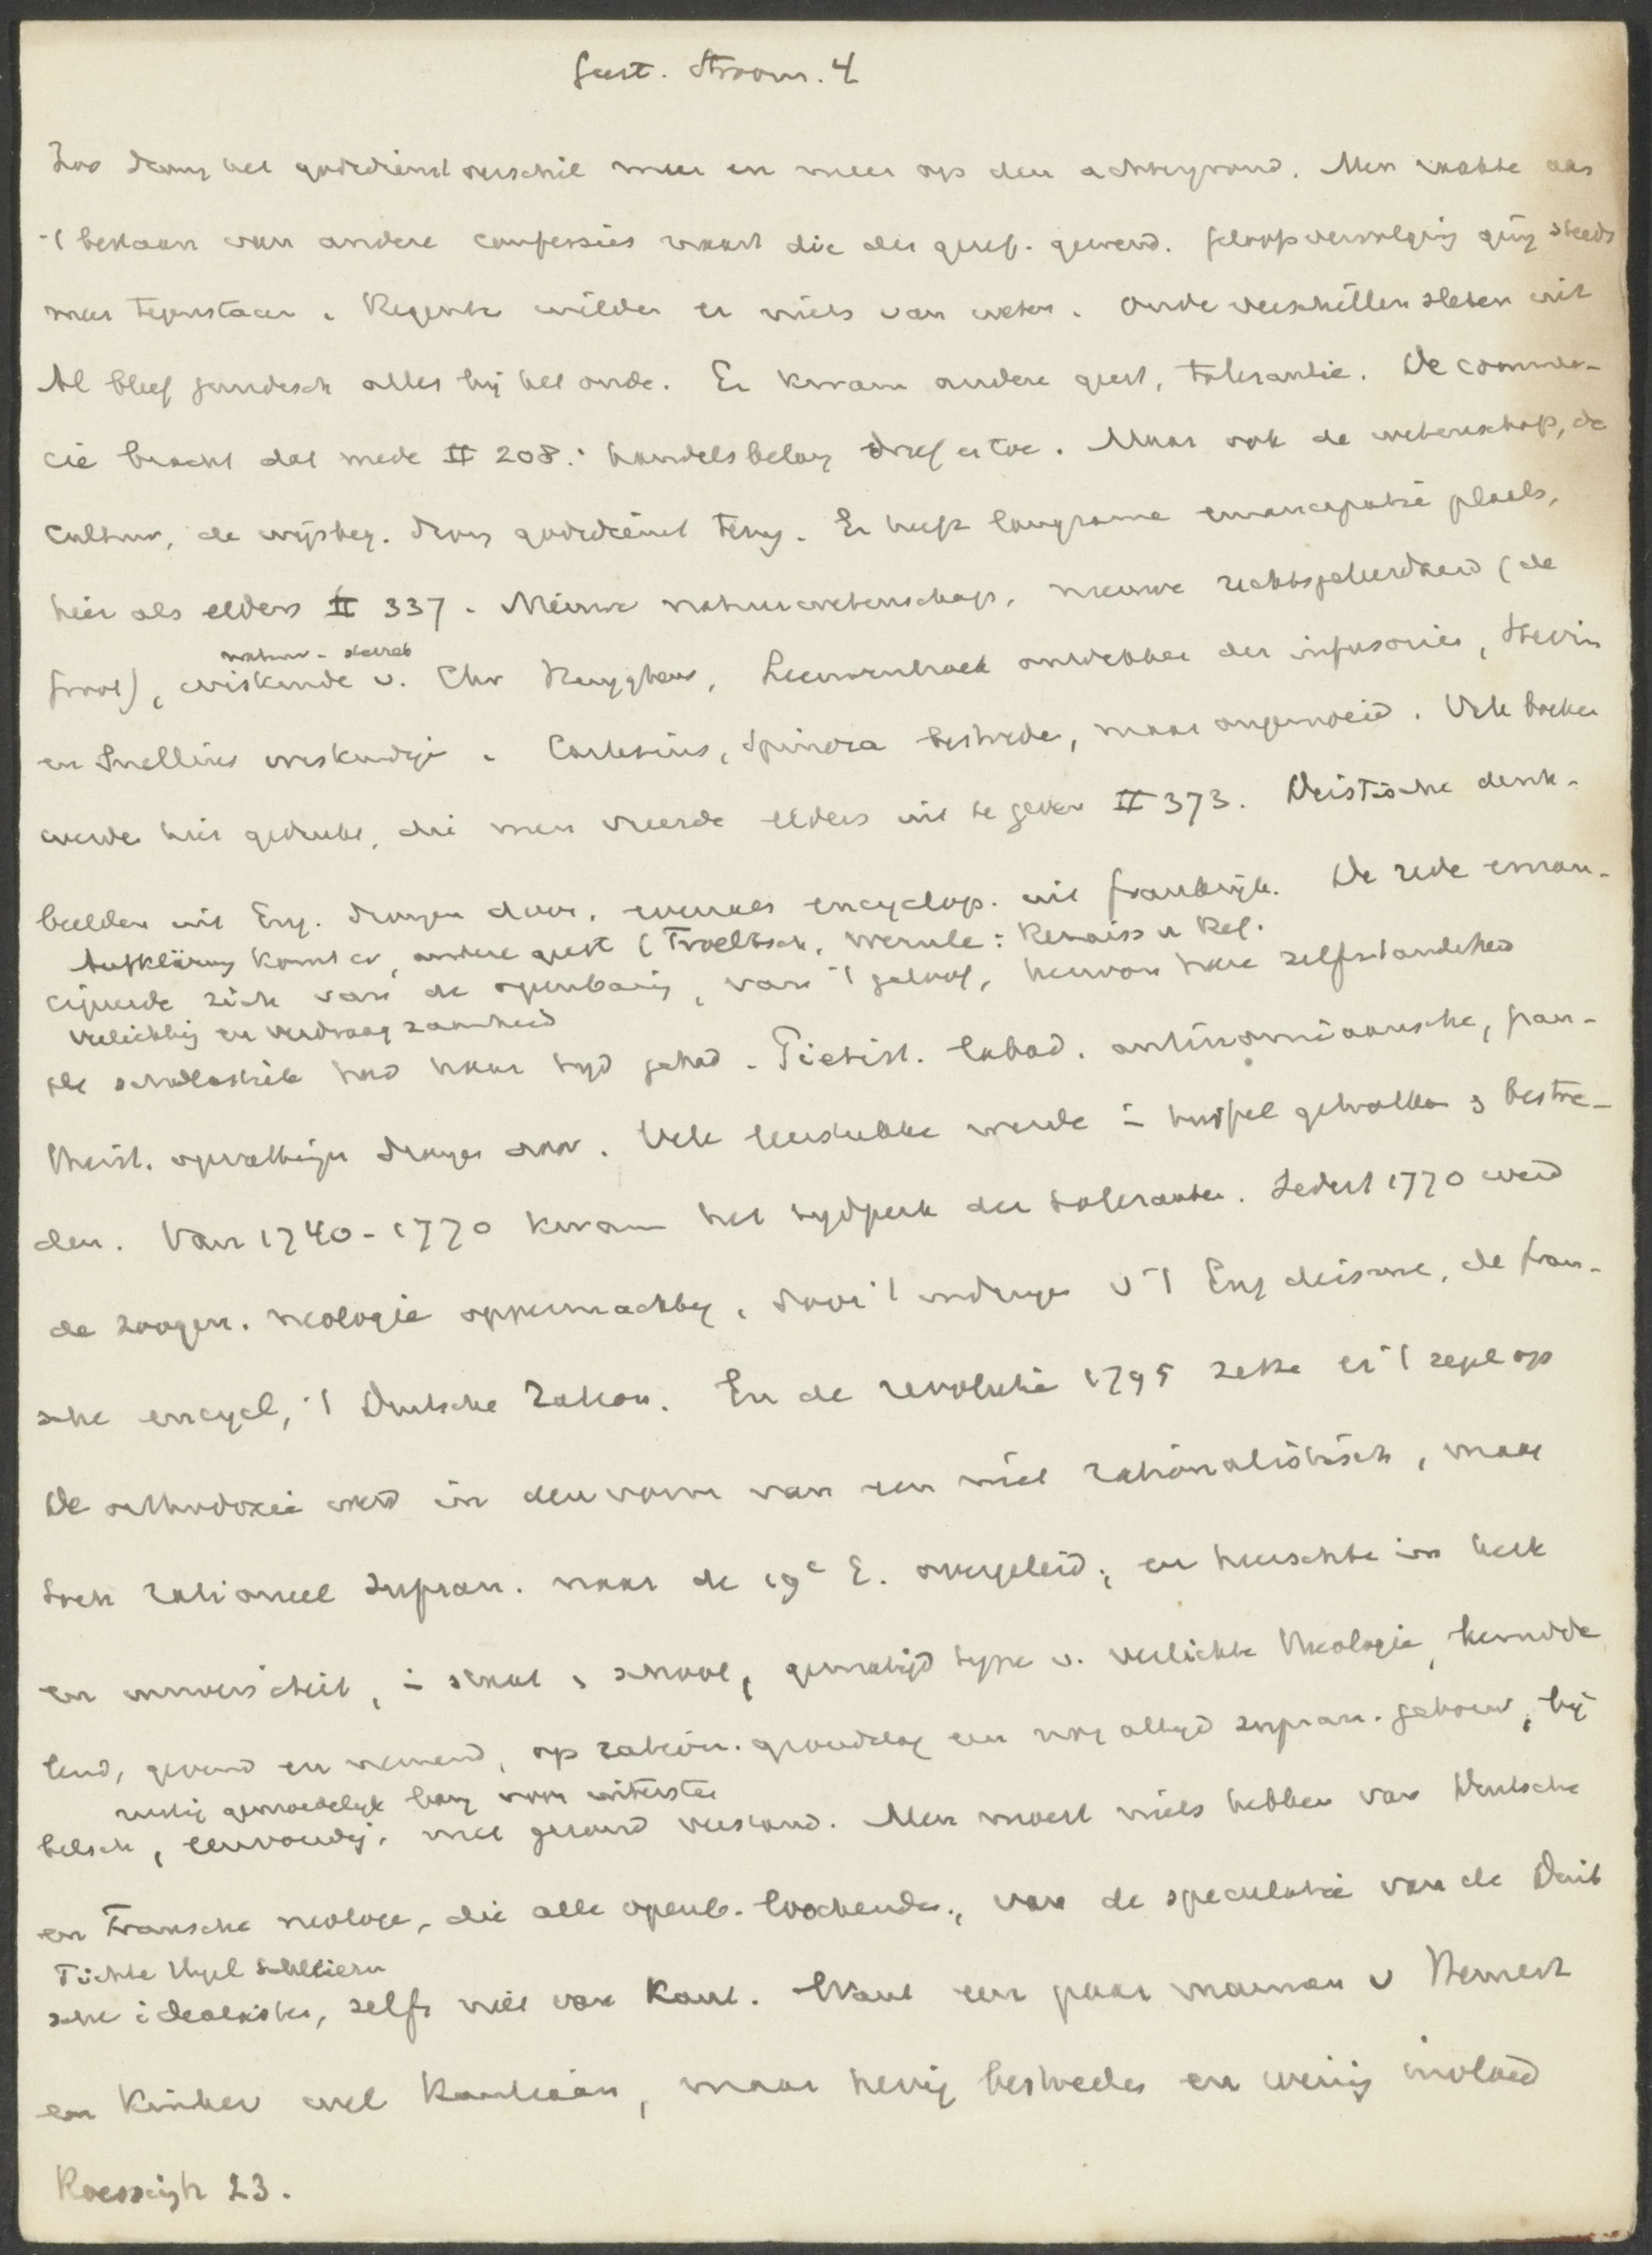 Geest. Stroom. 4
Zoo drong het godsdienst verschil meer en meer op den achtergrond. Men raakte aan
't bestaan van andere confessies naast die der geref. gewend. Geloofsvervolging ging steeds
meer tegenstaan. Regenten wilden er niets van weten. Oude verschillen sleten uit
Al bleef juridisch alles bij het oude. Er kwam andere geest, tolerantie. De commer-
cie bracht dat mede II 208: handelsbelang dreef er toe. Maar ook de wetenschap, de
cultuur, de wijsbeg. drong godsdienst terug. Er heeft langzame emancipatie plaats,
hier als elders II 337. Nieuwe natuurwetenschap, nieuwe rechtsgeleerdheid (de
natuur- sterrek
Groot), wiskunde v. Chr Huyghens, Leeuwenhoek ontdekker der infusories, Stevin
en Snellius wiskundige. Cartesius, Spinoza bestreden, maar ongemoeid. Vele boeken
werden hier gedrukt, die men vreesde elders uit te geven II 373. Deistische denk-
beelden uit Eng. drongen door, evenals encyclop. uit Frankrijk. De rede eman-
Aufklärung komt er, andere geest (Troeltsch, Wernle: Renaiss u Ref.
cipeerde zich van de openbaring, van 't geloof, herwon hare zelfstandigheid
Verlichting en verdraagzaamheid
de scholastiek had haar tijd gehad. Pietist. labad. antinomiaansche, pan-
theist. opvattingen drongen door. Vele leerstukken werden in twijfel getrokken & bestre-
den. Van 1740-1770 kwam het tijdperk der tolerantie. Sedert 1770 werd
de zoogen. neologie oppermachtig, door 't indringen v 't Eng deisme, de Fran-
sche encycl, 't Duitsche Ration. En de revolutie 1795 zette er 't zegel op
De orthodoxie werd in den vorm van een niet rationalistisch, maar
toch rationeel supran. naar de 19e E. overgeleid; en heerschte in kerk
en universiteit, in staat & school, gematigd type v. verlichte theologie,
lend, gevend en nemend, op ration. grondslag een nog altijd supran. gebouw, bij
rustig gemoedelijk bang voor uitersten
belsch, eenvoudig, met gezond verstand. Men moest niets hebben van Duitsche
en Fransche neologie, die alle openb. loochenden, van de speculatie van de Duit
Fichte Hegel Schleierm
sche idealisten, zelfs niet van Kant. Want een paar mannen v Hemert
en Kinker wel Kantiaan, maar hevig bestreden en weinig invloed
Roessingh 23.